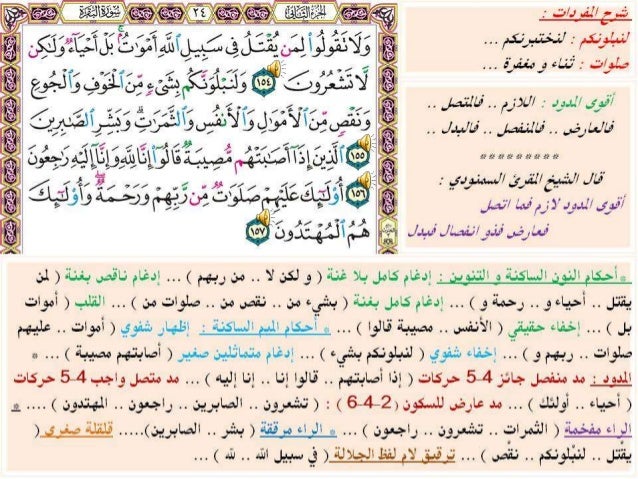 سُورَةُ البَقَرَةِ
٢٤
الجُزْءُ الثَّانِي
وَلَا تَقُولُوا۟ لِمَن يُقْتَلُ فِى سَبِيلِ ٱللَّهِ أَمْوَٰتٌۢ ۚ بَلْ أَحْيَآءٌ وَلَٰكِن
لَّا تَشْعُرُونَ ١٥٤ وَلَنَبْلُوَنَّكُم بِشَىْءٍ مِّنَ ٱلْخَوْفِ وَٱلْجُوعِ
وَنَقْصٍ مِّنَ ٱلْأَمْوَٰلِ وَٱلْأَنفُسِ وَٱلثَّمَرَٰتِ ۗ وَبَشِّرِ ٱلصَّٰبِرِينَ
١٥٥ ٱلَّذِينَ إِذَآ أَصَٰبَتْهُم مُّصِيبَةٌ قَالُوٓا۟ إِنَّا لِلَّهِ وَإِنَّآ إِلَيْهِ رَٰجِعُونَ
١٥٦ أُو۟لَٰٓئِكَ عَلَيْهِمْ صَلَوَٰتٌ مِّن رَّبِّهِمْ وَرَحْمَةٌ ۖ وَأُو۟لَٰٓئِكَ
هُمُ ٱلْمُهْتَدُونَ ١٥٧
شرح المفردات :
لنبلونكم : لنختبرنكم ...
صلوات : ثناء و مغفرة ...
أقوى المدود : اللازم .. فالمتصل ..
فالعارض .. فالمنفصل .. فالبدل ..
*********
قال الشيخ المقرئ السمنودي :
أقوى المدود لازم فما اتصل
فعارض فذو انفصال فبدل
*أحكام النون الساكنة و التنوين : إدغام كامل بلا غنة ( و لكن لا .. من ربهم ) ... إدغام ناقص بغنة ( لمن
يقتل .. أحياء و .. رحمة و ) ... إدغام كامل بغنة ( بشيء من .. نقص من .. صلوات من ) ... القلب ( أموات
بل ) ... إخفاء حقيقي ( الأنفس .. مصيبة قالوا ) ... * أحكام الميم الساكنة : إظهار شفوي ( أموات .. عليهم
صلوات .. ربهم و ) ... إخفاء شفوي ( لنبلونكم بشيء ) ... إدغام متماثلين صغير ( أصابتهم مصيبة ) ... *
المدود : مد منفصل جائز 4-5 حركات ( إذا أصابتهم .. قالوا إنا .. إنا إليه ) ... مد متصل واجب 4-5 حركات
( أحياء .. أولئك ) ... مد عارض للسكون ( 2-4-6 ) : ( تشعرون .. الصابرين .. راجعون .. المهتدون ) .... *
الراء مفخمة ( الثمرات .. تشعرون .. راجعون ) ... * الراء مرققة ( بشر .. الصابرين)..... قلقلة صغرى (
يقتل .. لنبلونكم .. نقص ) ... ترقيق لام لفظ الجلالة ( في سبيل الله .. لله ) ...